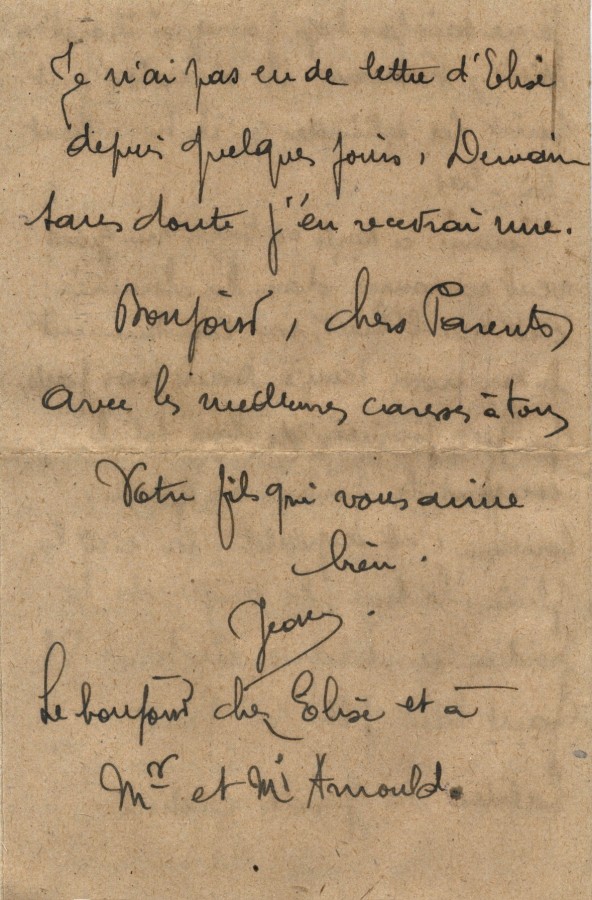 Je n'ai pas eu de lettre d'Elise
depuis quelques jours, Demain
sans doute j'en recevrai une.
Bonjour, chers Parents,
avec les meilleures caresses à tous
Votre fils qui vous aime
bien.
Jean.
Le bonjour chez Elise et à
Mr et Me Arnould.